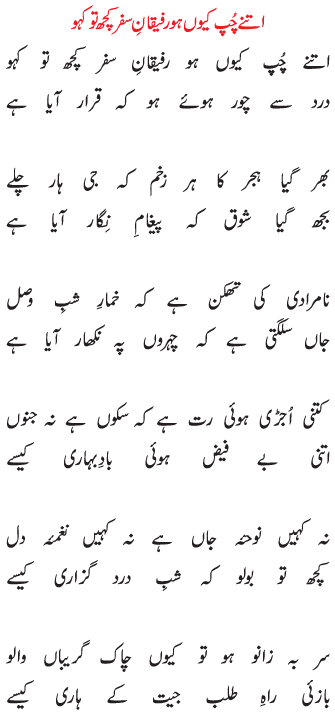 اتنے چُپ کیوں ہو رفیقانِ سفر کچھ تو کہو
اتنے چُپ کیوں ہو رفیقانِ سفر کچھ تو کہو
درد سے چور ہوئے ہو کہ قرار آیا ہے
بھر گیا ہجر کا ہر زخم کہ جی ہار چلے
بجھ گیا شوق کہ پیغامِ نِگار آیا ہے
نامرادی کی تھکن ہے کہ خمارِ شبِ وصل
جاں سلگتی ہے کہ چہروں پہ نکھار آیا ہے
کتنی اُجڑی ہوئی رت ہے کہ سکوں ہے نہ جنوں
اتنی بے فیض ہوئی بادِبہاری کیسے
نہ کہیں نوحۂ جاں ہے نہ کہیں نغمۂ دل
کچھ تو بولو کہ شبِ درد گزاری کیسے
سر بہ زانو ہو تو کیوں چاک گریباں والو
بازئی راہِ طلب جیت کے ہاری کیسے